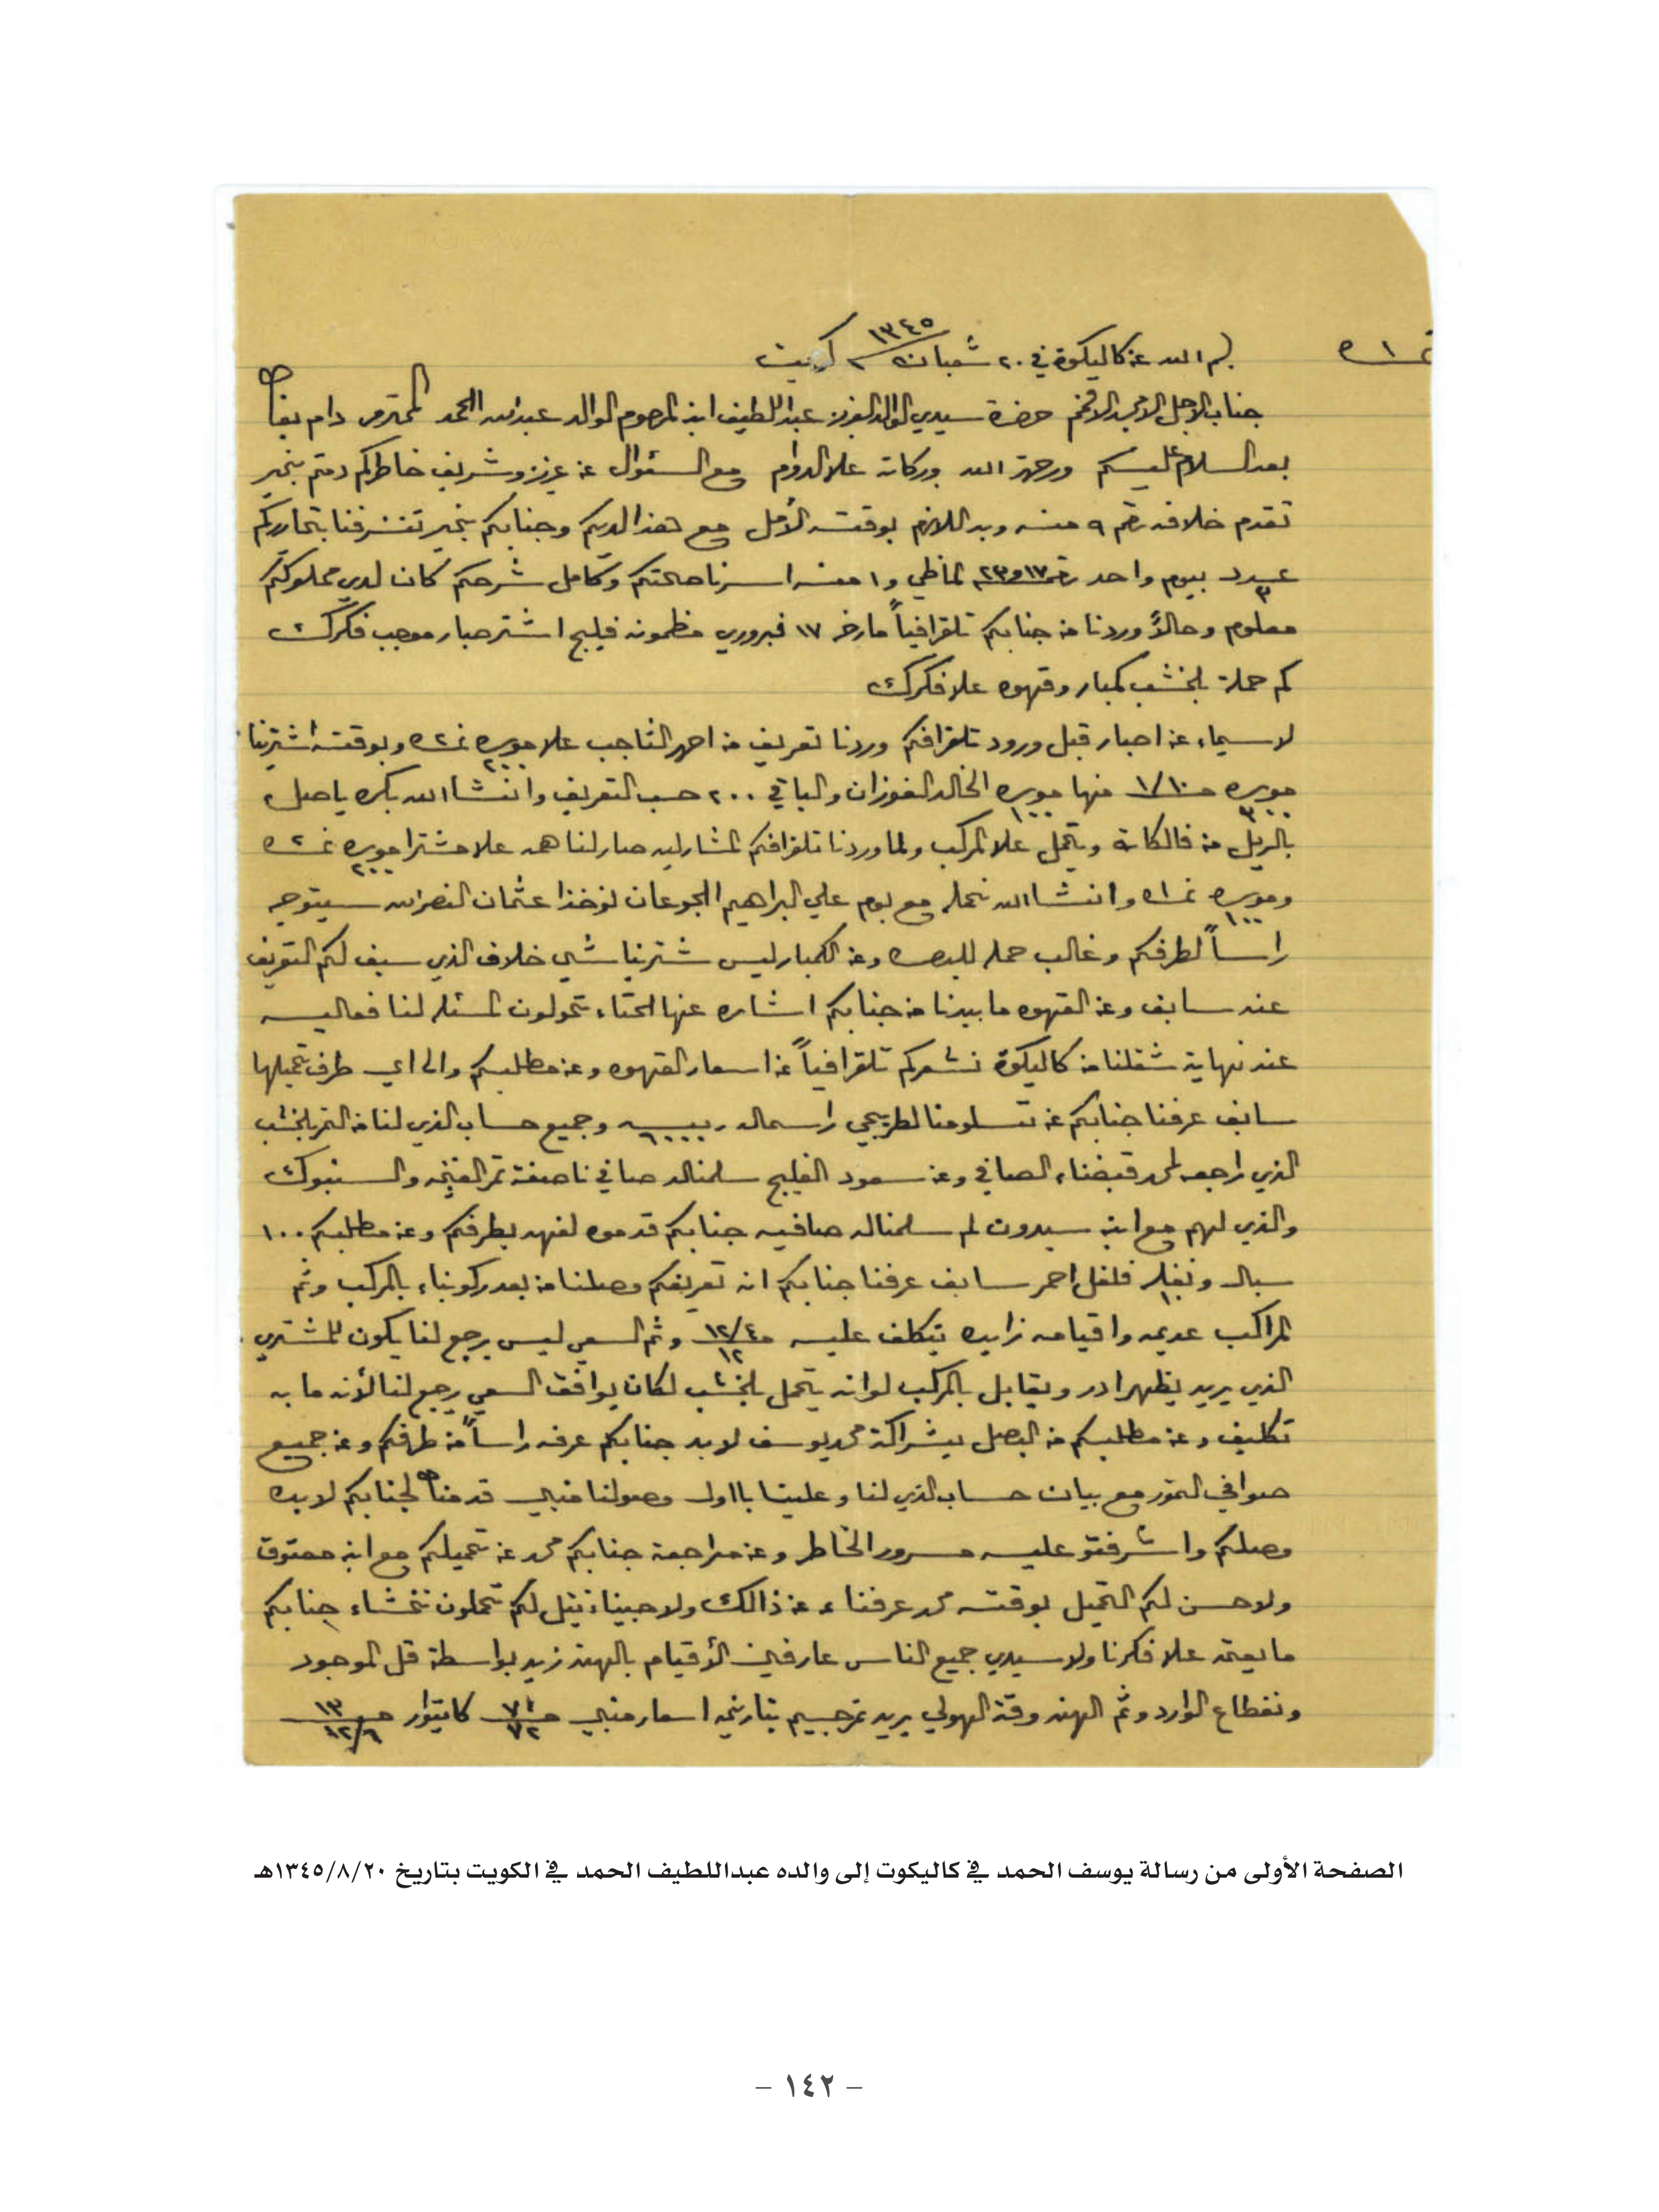 نمـ ١ـره
بسم الله من كاليكوة في ٢٠ شعبان سنة ١٣٤٥ كويت
جناب الاجل الامجد الافخم حضرة سيدي الوالد العزيز عبداللطيف ابن المرحوم الوالد عبدالله الحمد المحترم دام بقاه
بعد السلام عليكم ورحمة الله وبركاته علا الدوام مع السئوال عن عزيز وشريف خاطركم دمتم بخير
تقدم خلافه رقم ٩ منه وبه اللازم بوقته الأمل مع هذا لديكم وجنابكم بخير تشرفنا بتحاريركم
عدد ٣ بيوم واحد رقم ١٧ و٢٣ الماظي و١ منه اسرنا صحتكم وكامل شرحكم كان لدى مملوككم
معلوم وحالاً وردنا من جنابكم تلقرافياً مارخ ١٧ فبروري مظمونه فليج اشتر حبار موجب فكرك
كم حملة بلخشب كمبار وقهوه علا فكرك
لاسيماء عن احبار قبل ورود تلقرافكم وردنا تعريف من احمد الثاجب علا جوره ٢٠٠ نمـ٢ـره وبوقته اشترينا
جوره ٣٠٠ منها جوره ١٠٠ الخالد الفوزان والباقي ٢٠٠ حسب التعريف وانشاالله بكره ياصل
بالريل من فالكاته ويتحمل علا المركب ولما وردنا تلقرافكم المشار ليه صار لنا همه علا مشترا جوره ٢٠٠ نمـ٢ـره
وجوره ١٠٠ نمـ١ـره وانشاالله نحمله مع بوم علي البراهيم الجوعان نوخذا عثمان النصرالله سيتوجه
راساً لطرفكم وغالب حمله للبصره وعن الكمبار ليس شترينا شي خلاف الذي سبق لكم التعريف
عنه سابق وعن القهوه ما بيدنا من جنابكم اشاره عنها الحتاء تحولون المسئله لنا فعاليه
عند نهاية شغلنا من كاليكوة نشعركم تلقرافياً عن اسعار القهوه وعن مطلبكم والى اي طرف تحميلها
سابق عرفنا جنابكم عن تسلومنا لطريجي راسماله ربيه وجميع حساب الذي لنا من التمر بلخشب
الذي راجعه لمحمد قبضناء الصافي وعن سعود الفليج سلمناله صافي ناصفة تمر الغنيمه والسنبوك
والذي لهم مع ابن سيدون لم سلمناله صافيه جنابكم قدموه لفهد بطرفكم وعن مطلبكم ١٠٠
سباله ونغله فلفل احمر سابق عرفنا جنابكم ان تعريفكم وصلنا من بعد ركوبناء بالمركب وثم
المراكب عديمه واقيامه زايده يتكلف عليه ١٢/٤ ١٢ وثم السعي ليس يرجع لنا يكون للمشتري
الذي يريد يظهر ادر ويقابل بالمركب لوانه يتحمل بلخشب لكان يوافق السعي يرجع لنا لأنه ما به
تكليف وعن مطلبكم من البصل بشراكة محمد يوسف لابد جنابكم عرفه راساً من طرفكم وعن جميع
صوافي التمور مع بيان حساب الذي لنا وعلينا بااول وصولنا منبي قدمناه لجنابكم لابده
وصلكم واشرفتو عليه مسرور الخاطر وعن مراجعة جنابكم محمد عن تحميلكم مع ابن معتوق
ولاحسن لكم التحميل بوقته محمد عرفناء عن ذالك ولا حبينا ننقل لكم تحملون نخشاء جنابكم
ما يعتمد علا فكرنا ولا سيدي جميع الناس عارفين الأقيام بالهند زين بواسطة قل الموجود
ونقطاع الوارد وثم الهند وقت الهولي يريد ترجيم بتاريخه اسعار منبي كاتيوار
الصفحة الأولى من رسالة يوسف الحمد في كاليكوت إلى والده عبداللطيف الحمد في الكويت بتاريخ ١٣٤٥/٨/٢٠هـ
– ١٤٢ –